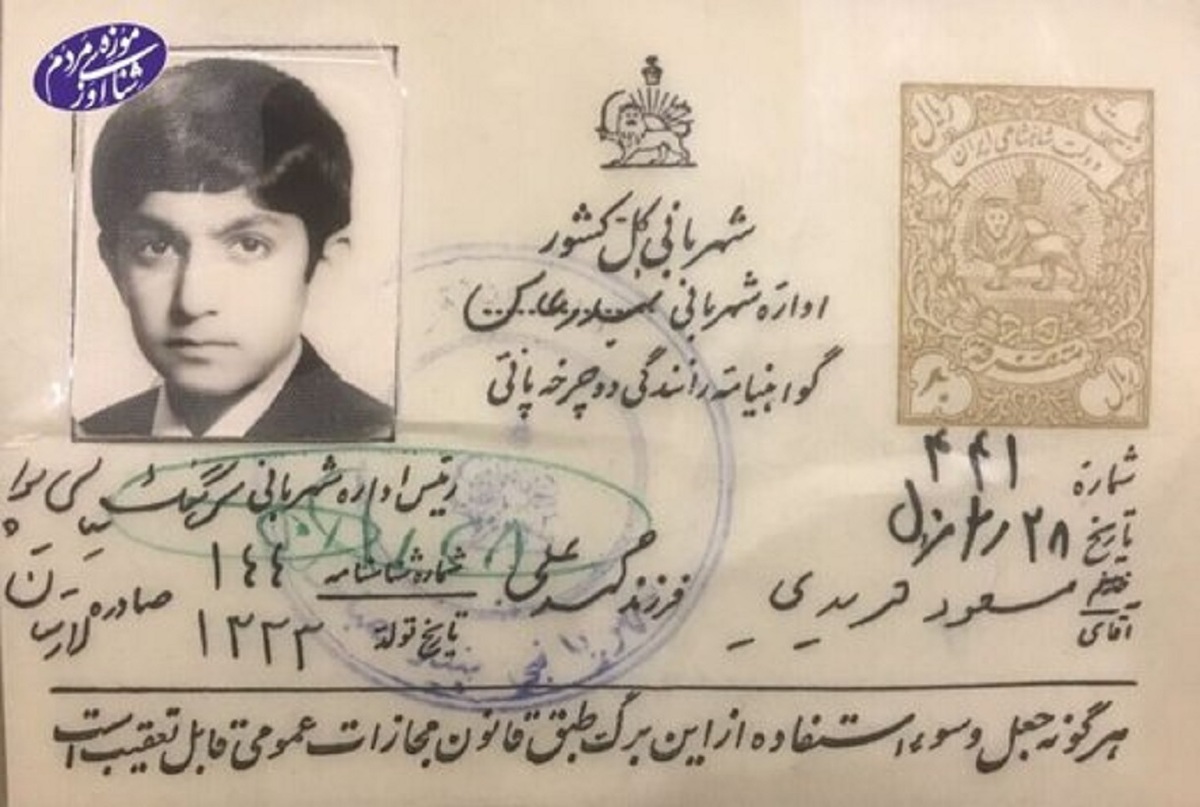 موزه‌ی مردم شناسی اوز
شهربانی کل کشور
اداره شهربانی
گواهینامه رانندگی دوچرخه پائی
دولت شاهنشاهی ایران
ریال
ریال
شماره ۴۴۱
تاریخ ۲۸
خانم
آقای مسعود فریدی
فرزند محمد علی
شماره شناسنامه ۱۴۴
تاریخ تولد ۱۳۳۳
صادره لارستان
رئیس اداره شهربانی سرهنگ
هرگونه جعل و سوء استفاده از این برگ طبق قانون مجازات عمومی قابل تعقیب است